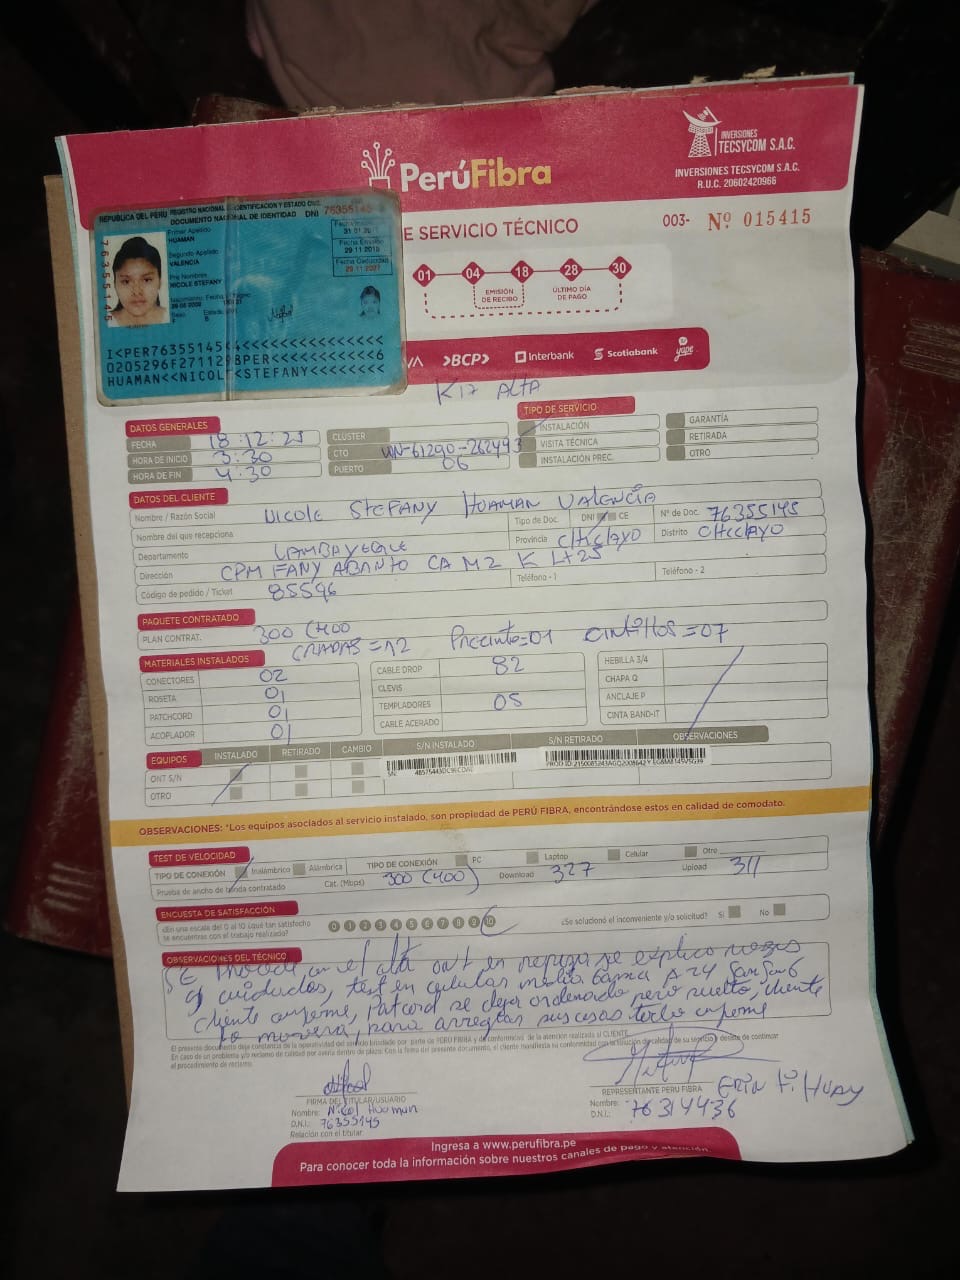 INVERSIONES
TECSYCOM S.A.C.
PerúFibra
INVERSIONES TECSYCOM S.A.C.
R.U.C. 20602420966
E SERVICIO TÉCNICO
003- Nº 015415
REPUBLICA DEL PERU REGISTRO NACIONAL DE IDENTIFICACION Y ESTADO CIVIL
DOCUMENTO NACIONAL DE IDENTIDAD DNI 76355145
Primer Apellido
HUAMAN
Segundo Apellido
VALENCIA
Pre Nombres
NICOLE STEFANY
Fecha Emisión
29 11 2019
Fecha Caducidad
29 11 2027
Sexo
F
76355145
I<PER76355145<4<<<<<<<<<<<<<<<
0205296F2711298PER<<<<<<<<<<<6
HUAMAN<<NICOLE<STEFANY<<<<<<<<
01 04 18 28 30
EMISIÓN DE RECIBO
ÚLTIMO DÍA DE PAGO
BCP Interbank Scotiabank yape
K17 ALTA
DATOS GENERALES
FECHA 18:12:25
HORA DE INICIO 3:30
HORA DE FIN 4:30
CLUSTER
CTO UN-61290-262493
PUERTO 06
TIPO DE SERVICIO
INSTALACIÓN
VISITA TÉCNICA
INSTALACIÓN PREC.
GARANTÍA
RETIRADA
OTRO
DATOS DEL CLIENTE
Nombre / Razón Social NICOLE STEFANY HUAMAN VALENCIA
Nombre del que recepciona Tipo de Doc. DNI CE Nº de Doc. 76355145
Departamento LAMBAYEQUE Provincia CHICLAYO Distrito CHICLAYO
Dirección CPM FANY ABANTO CA MZ K LT 25 Teléfono - 1 Teléfono - 2
Código de pedido / Ticket 85596
PAQUETE CONTRATADO
PLAN CONTRAT. 300 (400
GRAPAS = 12 Precinto = 01 CINTILLOS = 07
MATERIALES INSTALADOS
CONECTORES 02
ROSETA 01
PATCHCORD 01
ACOPLADOR 01
CABLE DROP 82
CLEVIS
TEMPLADORES 05
CABLE ACERADO
HEBILLA 3/4
CHAPA Q
ANCLAJE P
CINTA BAND-IT
EQUIPOS INSTALADO RETIRADO CAMBIO S/N INSTALADO S/N RETIRADO OBSERVACIONES
ONT S/N
OTRO
OBSERVACIONES: *Los equipos asociados al servicio instalado, son propiedad de PERÚ FIBRA, encontrándose estos en calidad de comodato.
TEST DE VELOCIDAD
TIPO DE CONEXIÓN Inalámbrico Alámbrica TIPO DE CONEXIÓN PC Laptop Celular Otro
Prueba de ancho de banda contratado Cat. (Mbps) 300 (400) Download 327 Upload 311
ENCUESTA DE SATISFACCIÓN
¿En una escala del 0 al 10 ¿qué tan satisfecho se encuentras con el trabajo realizado? 0 1 2 3 4 5 6 7 8 9 10
¿Se solucionó el inconveniente y/o solicitud? Si No
OBSERVACIONES DEL TÉCNICO
SE procede con el alta ONT en repisa se explico
y cuidados, test en celular media gama A24 SamSung
cliente conforme, Patcord se deja ordenado pero suelto, cliente
lo movera, para arreglar sus cosas todo conforme
FIRMA DEL TITULAR/USUARIO
Nombre: Nicol Huaman
D.N.I.: 76355145
Relación con el titular
REPRESENTANTE PERU FIBRA
Nombre: ERIN
D.N.I.: 76314436
Ingresa a www.perufibra.pe
Para conocer toda la información sobre nuestros canales de pago y atención.